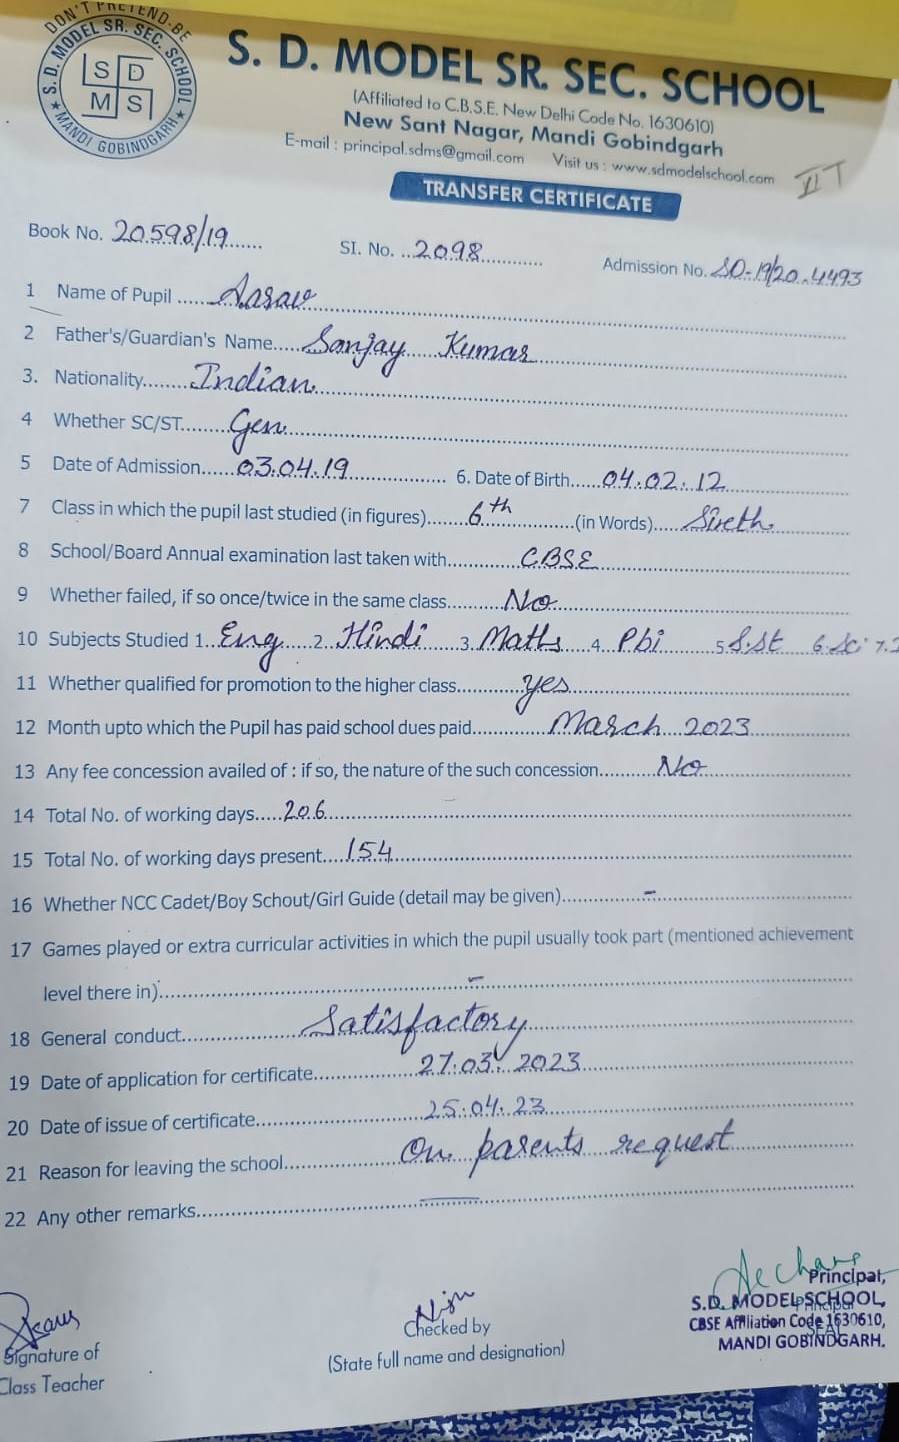 DON'T PRETEND-BE
S. D. MODEL SR. SEC. SCHOOL
S D
M S
★ MANDI GOBINDGARH ★
S. D. MODEL SR. SEC. SCHOOL
(Affiliated to C.B.S.E. New Delhi Code No. 1630610)
New Sant Nagar, Mandi Gobindgarh
E-mail : principal.sdms@gmail.com Visit us : www.sdmodelschool.com
TRANSFER CERTIFICATE
Book No. 20598/19 SI. No. 2098 Admission No. SD-19/20-4493
1 Name of Pupil Aarav
2 Father's/Guardian's Name Sanjay Kumar
3. Nationality Indian
4 Whether SC/ST Gen
5 Date of Admission 03.04.19 6. Date of Birth 04.02.12
7 Class in which the pupil last studied (in figures) 6th (in Words) Sixth
8 School/Board Annual examination last taken with CBSE
9 Whether failed, if so once/twice in the same class No
10 Subjects Studied 1. Eng 2. Hindi 3. Maths 4. Pbi 5 S.St 6. Sci 7.
11 Whether qualified for promotion to the higher class yes
12 Month upto which the Pupil has paid school dues paid March 2023
13 Any fee concession availed of : if so, the nature of the such concession No
14 Total No. of working days 206
15 Total No. of working days present 154
16 Whether NCC Cadet/Boy Schout/Girl Guide (detail may be given) -
17 Games played or extra curricular activities in which the pupil usually took part (mentioned achievement
level there in) -
18 General conduct Satisfactory
19 Date of application for certificate 27.03.2023
20 Date of issue of certificate 25.04.23
21 Reason for leaving the school On parents request
22 Any other remarks
Principal,
S.D. MODEL SCHOOL,
CBSE Affiliation Code 1630610,
MANDI GOBINDGARH.
Checked by
(State full name and designation)
Signature of
Class Teacher